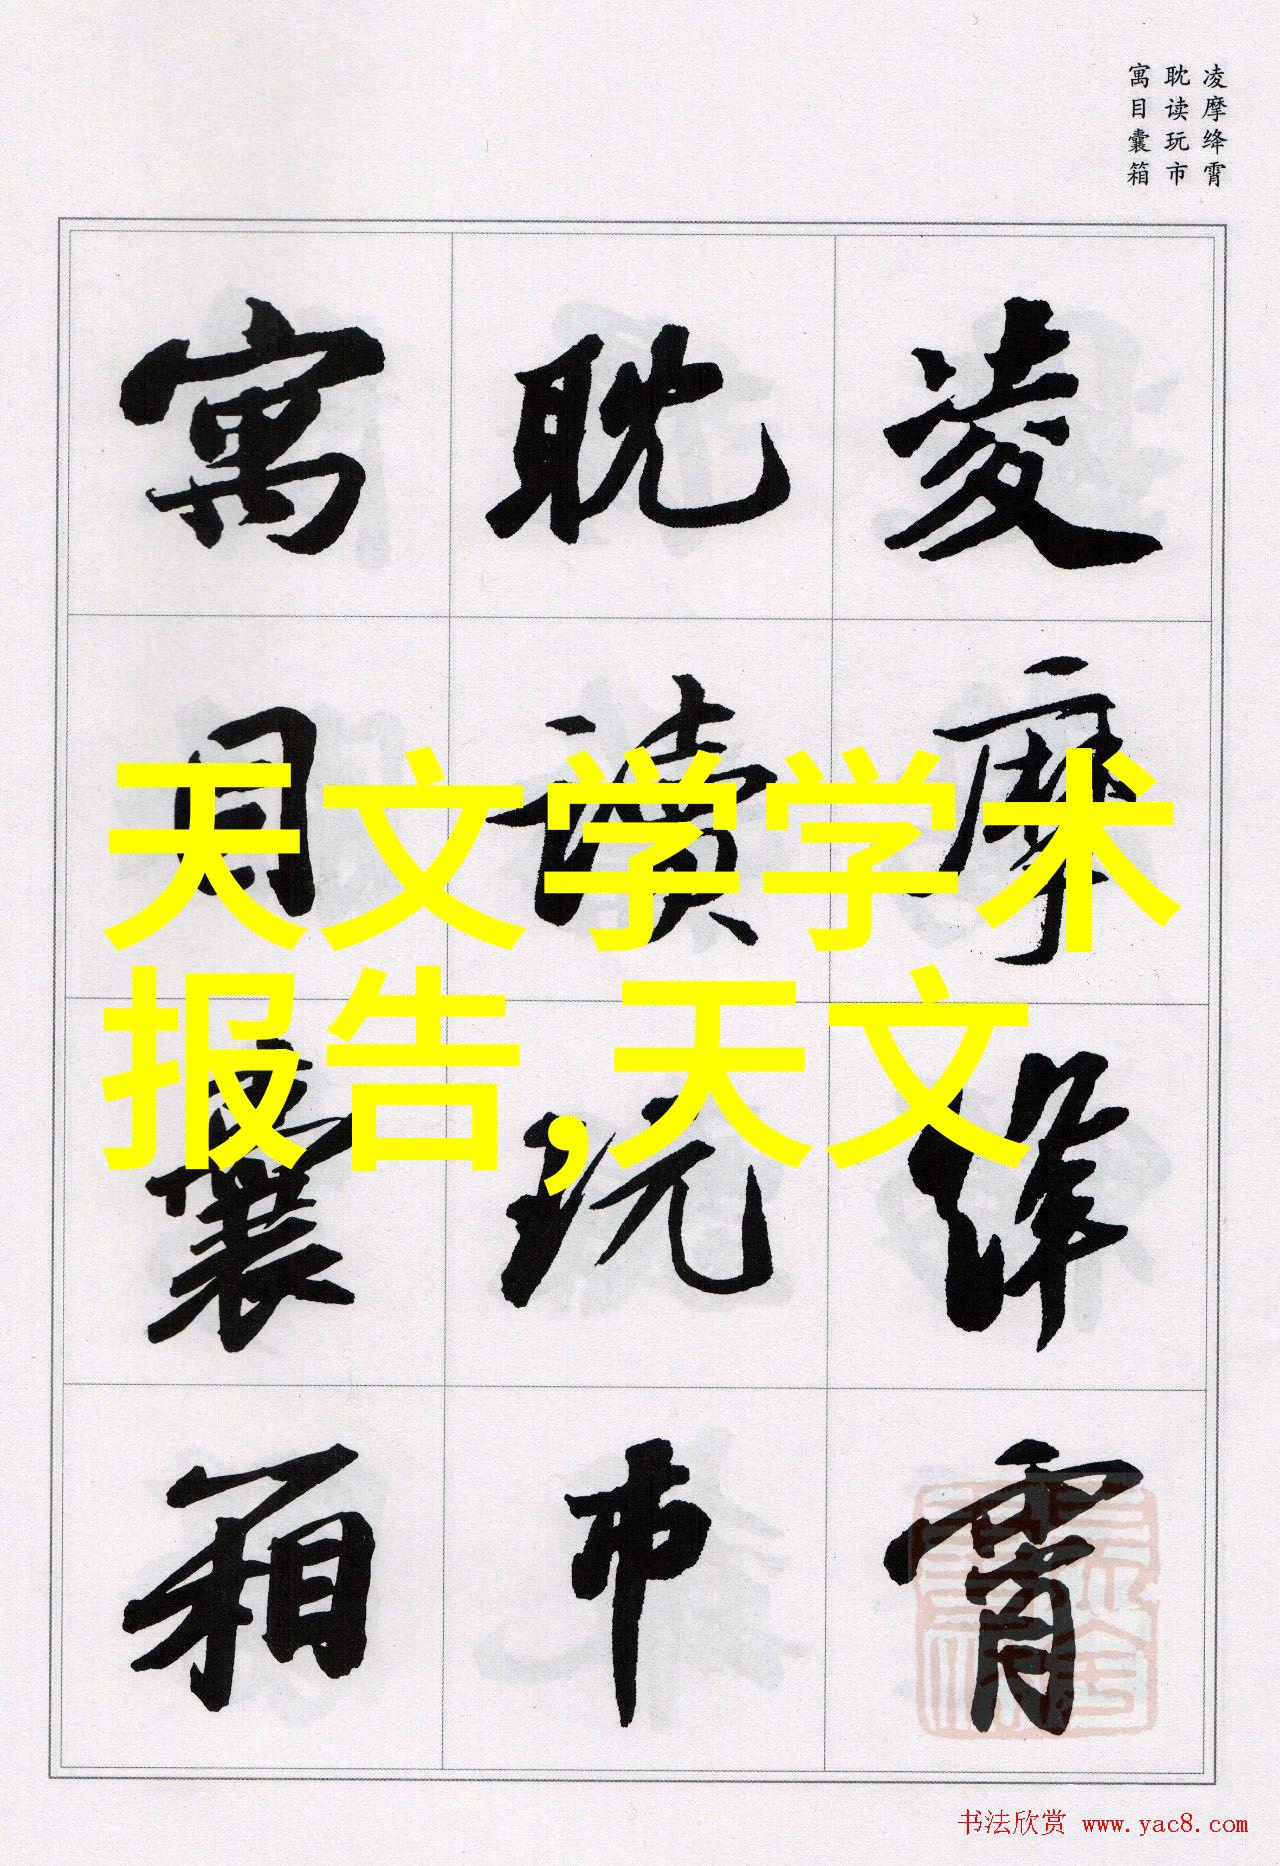 凌摩绛霄
耽读玩市
寓目囊箱
凌摩绛霄
耽读玩市
寓目囊箱
天文学学术
报告,天文
书法欣赏 www.yac8.com